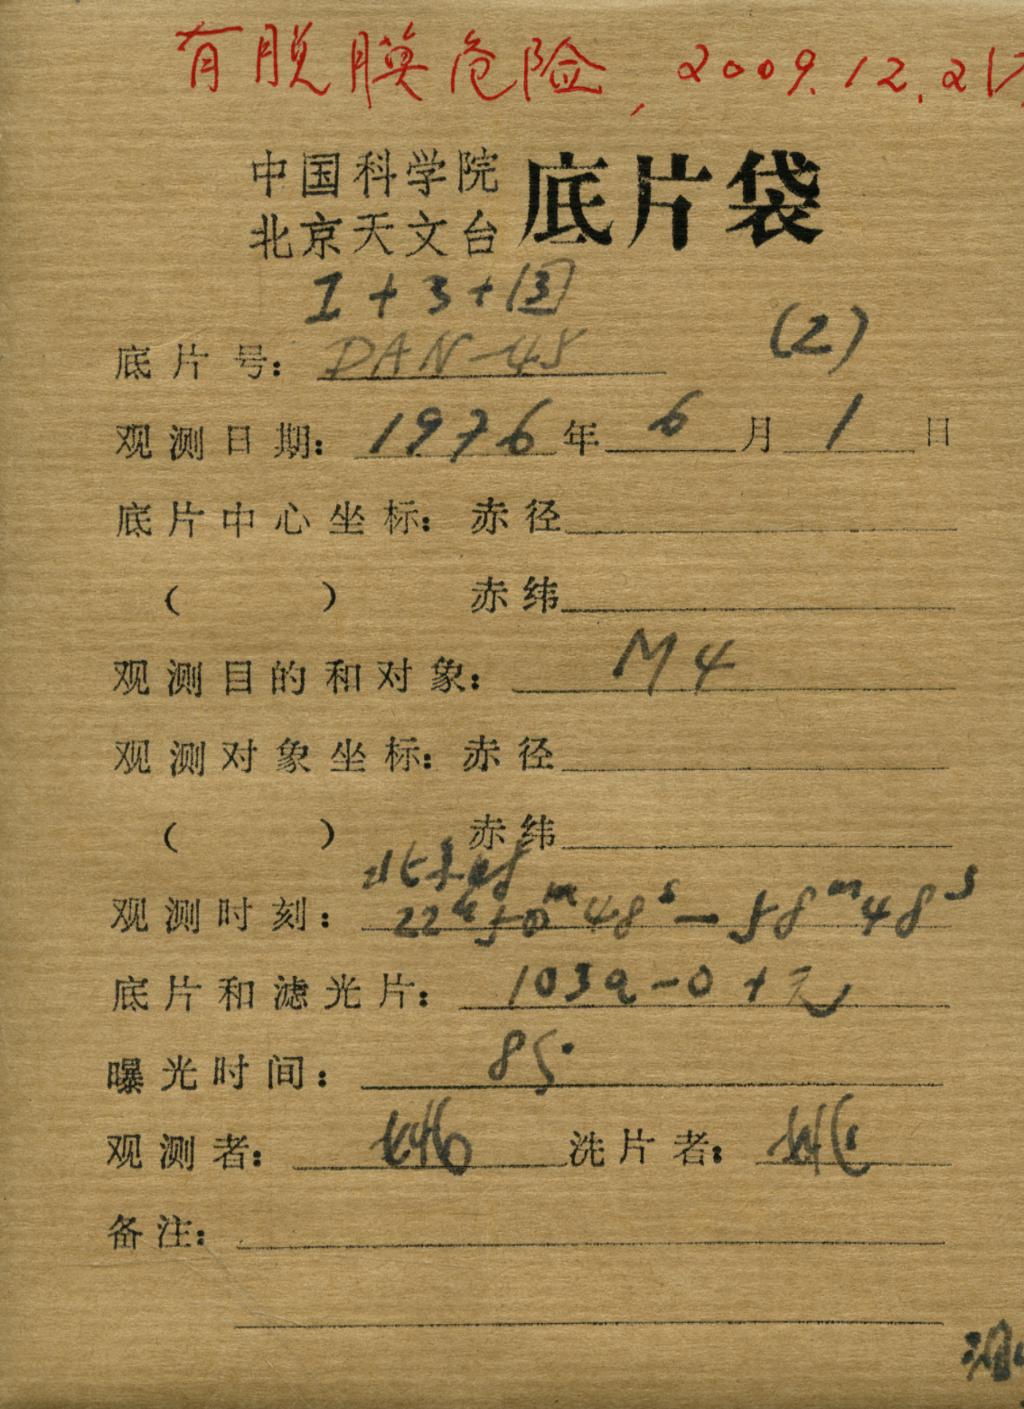 有脱膜危险, 2009.12.21
中国科学院
北京天文台 底片袋
I+3+
(2)
底片号: DAN-45
观测日期: 1976年 6 月 1 日
底片中心坐标: 赤径
( ) 赤纬
观测目的和对象: M4
观测对象坐标: 赤径
( ) 赤纬
北京时
观测时刻: 22h50m48s—58m48s
底片和滤光片: 103a-0+无
曝光时间:
观测者: 洗片者:
备注: